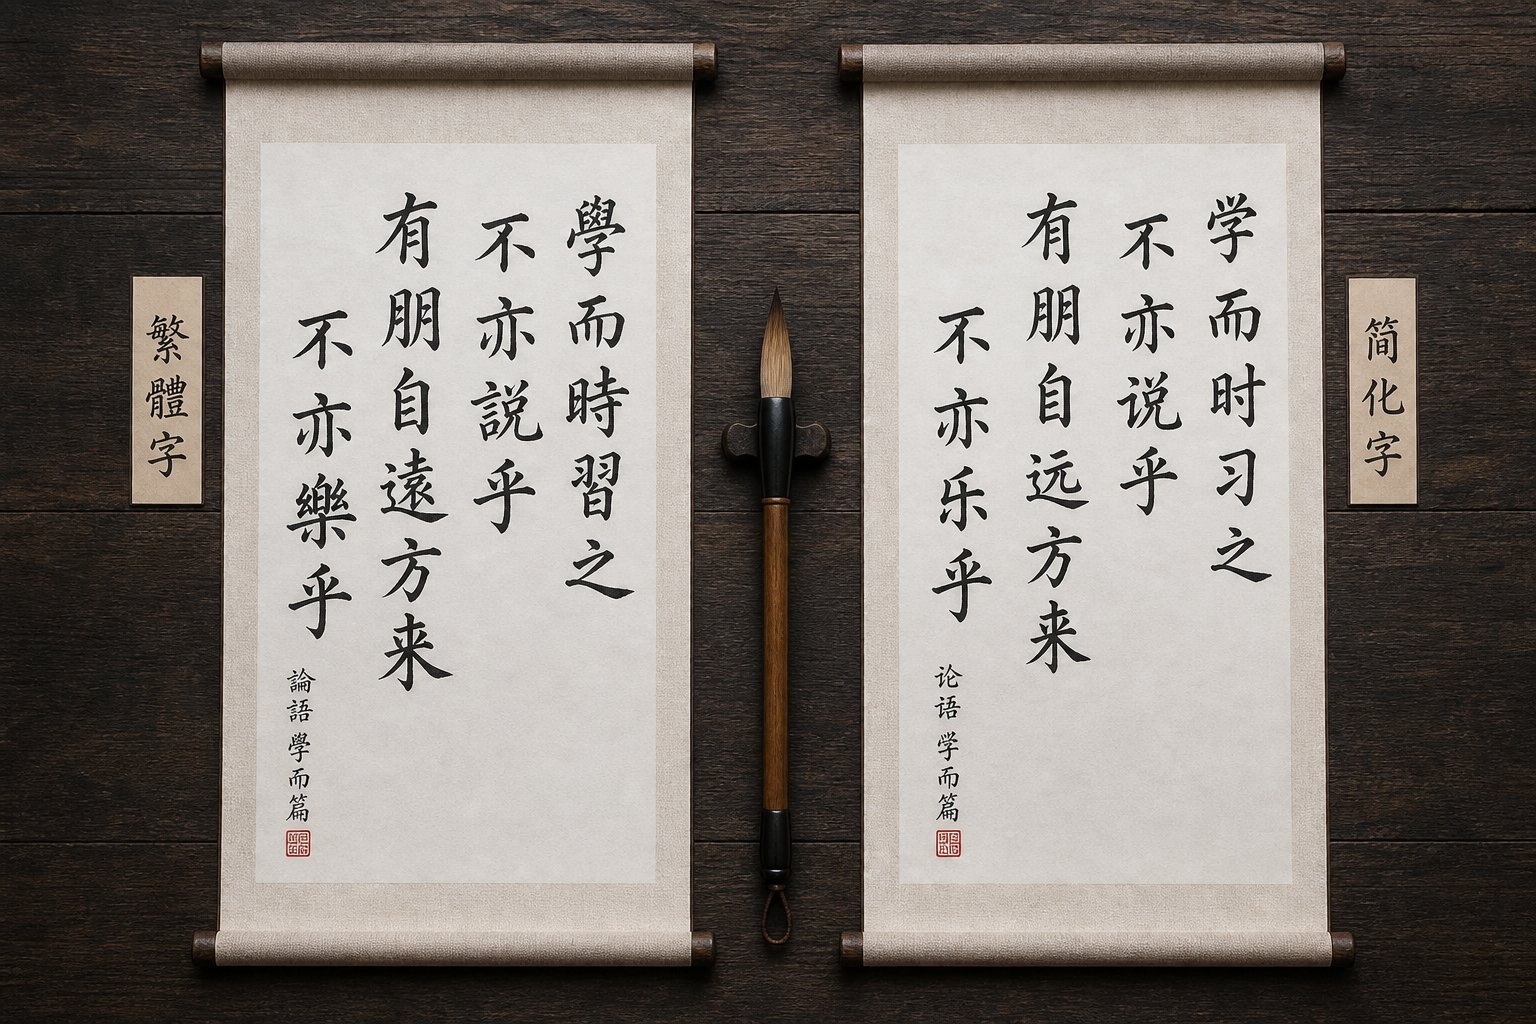 繁體字
學而時習之
不亦説乎
有朋自遠方来
不亦樂乎
論語 學而篇
学而时习之
不亦说乎
有朋自远方来
不亦乐乎
论语 学而篇
简化字